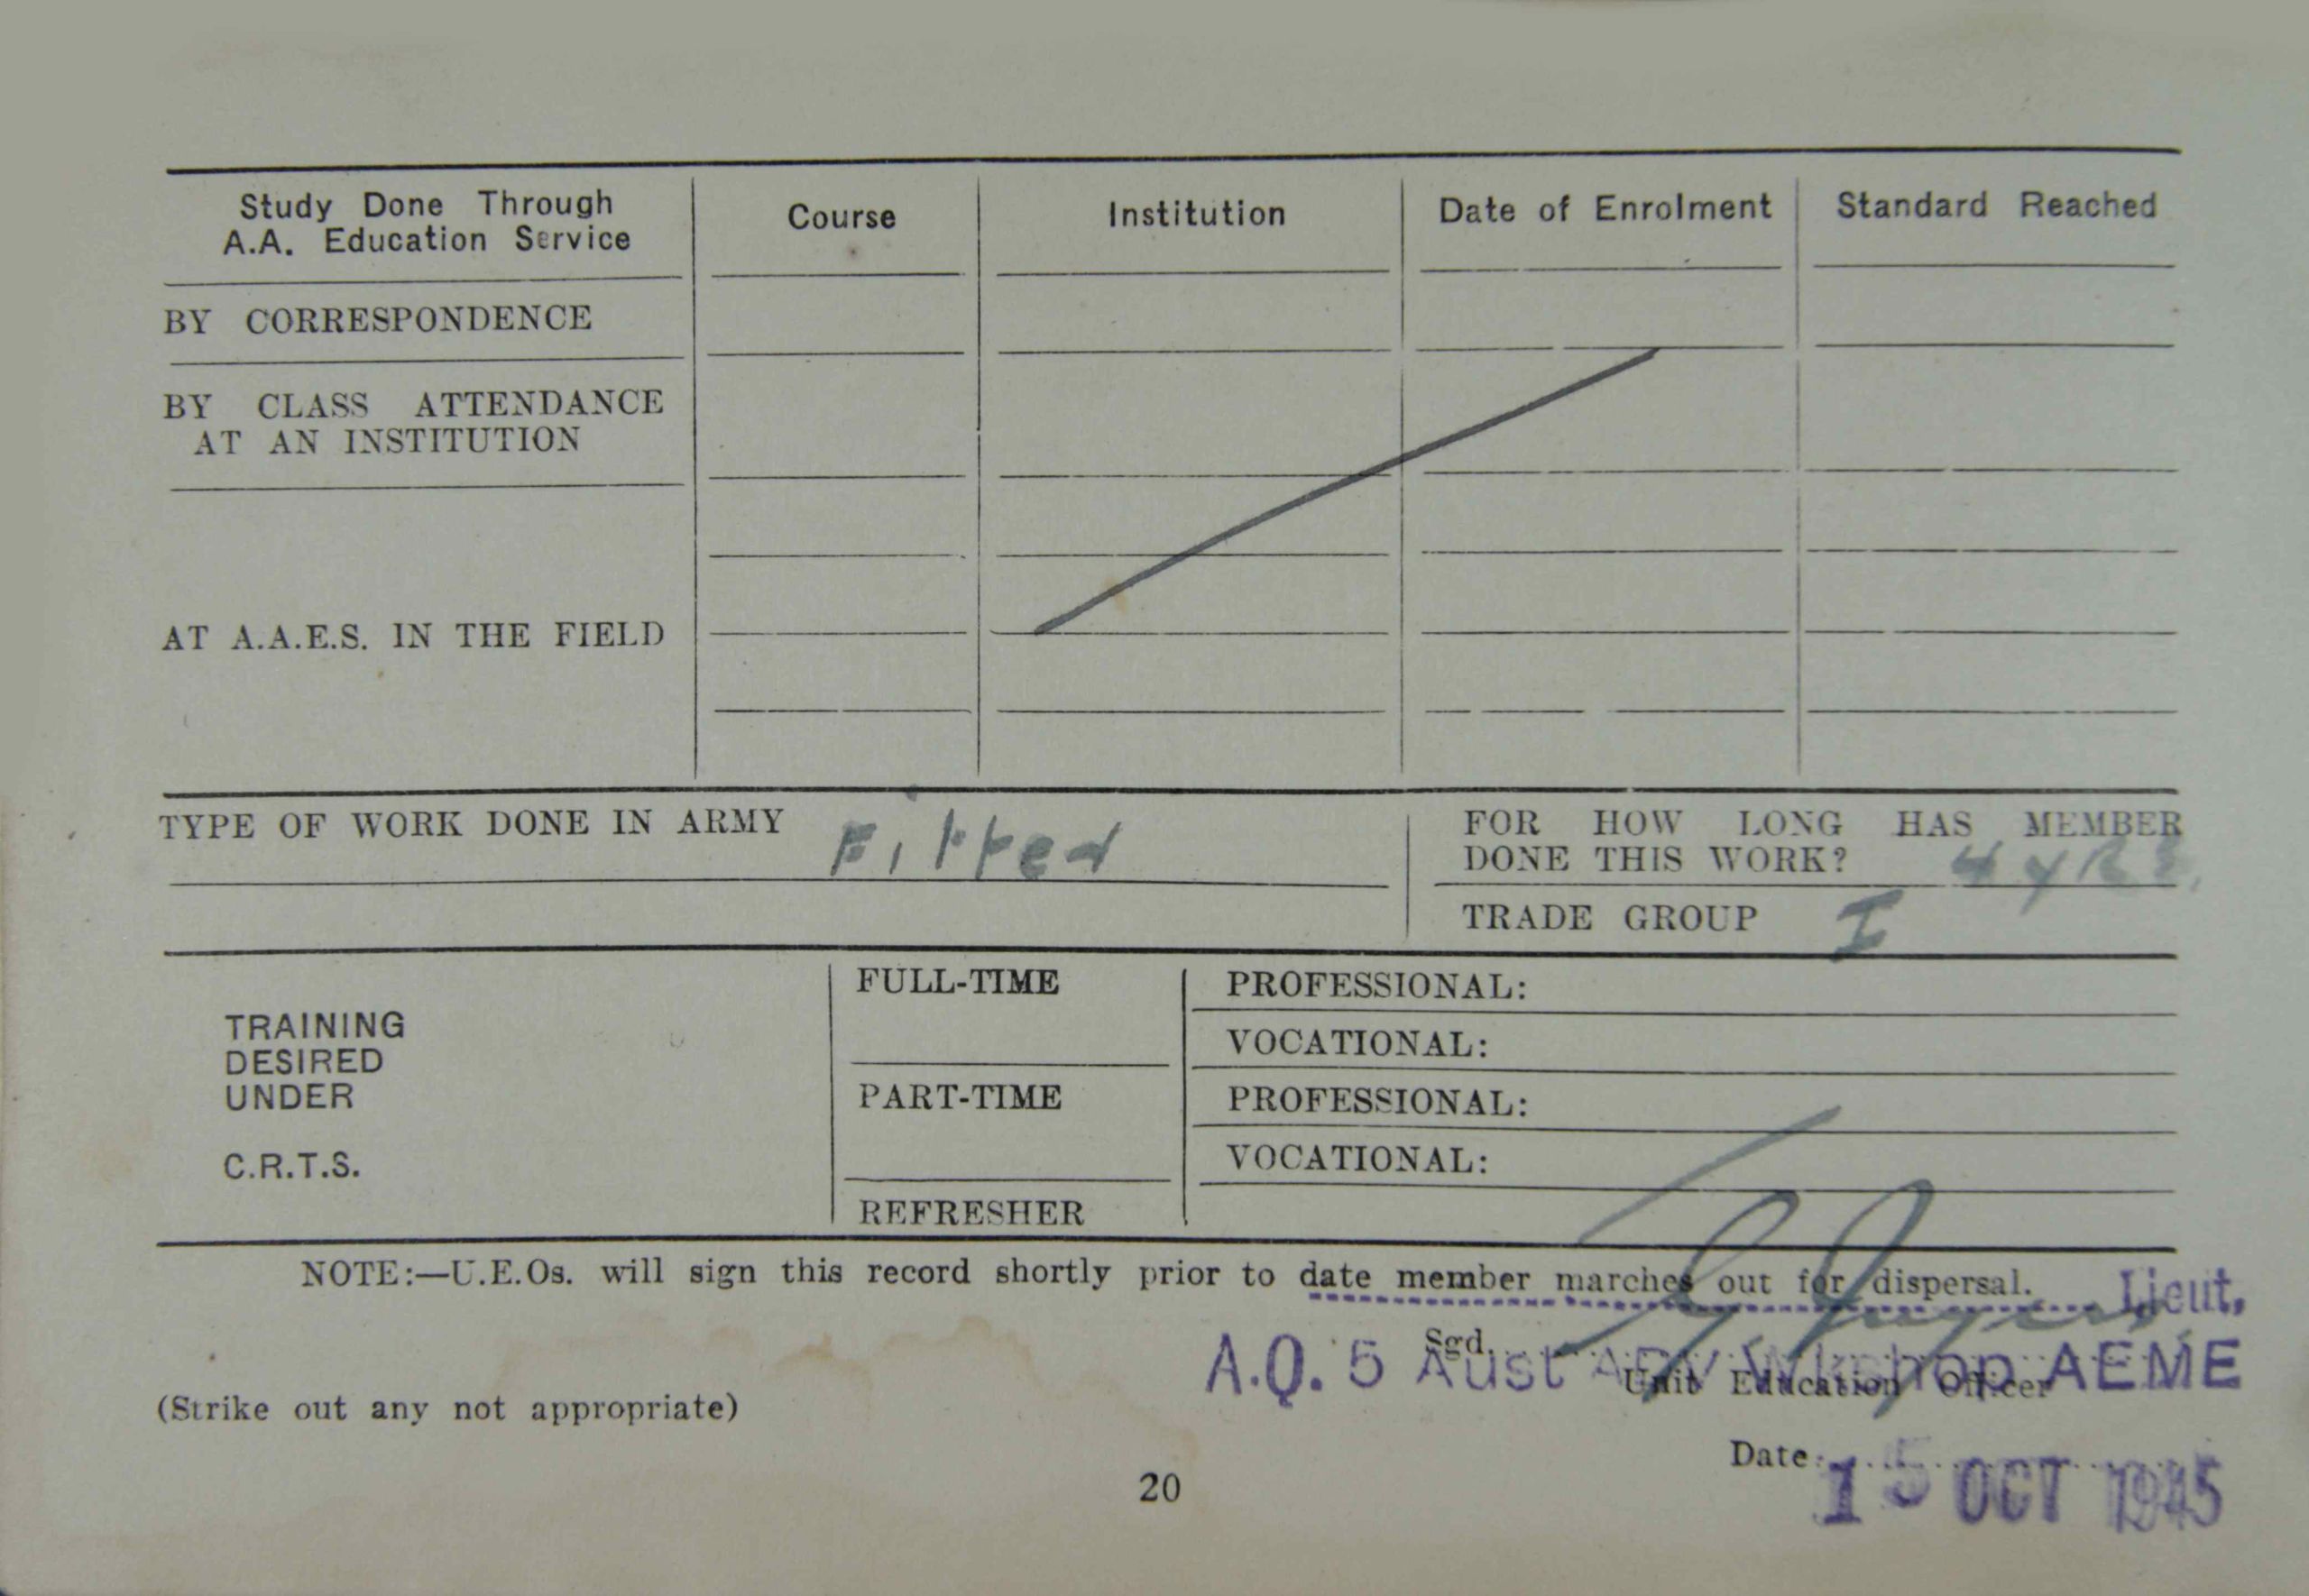 Study Done Through
A.A. Education Service
Course
Institution
Date of Enrolment
Standard Reached
BY CORRESPONDENCE
BY CLASS ATTENDANCE
AT AN INSTITUTION
AT A.A.E.S. IN THE FIELD
TYPE OF WORK DONE IN ARMY Fitter
FOR HOW LONG HAS MEMBER
DONE THIS WORK? 4 yRs.
TRADE GROUP I
TRAINING
DESIRED
UNDER
C.R.T.S.
FULL-TIME
PROFESSIONAL:
VOCATIONAL:
PART-TIME
PROFESSIONAL:
VOCATIONAL:
REFRESHER
NOTE:—U.E.Os. will sign this record shortly prior to date member marches out for dispersal.
Lieut.
Sgd.
A.Q. 5 Aust AFV Wkshop AEME
Unit Education Officer
(Strike out any not appropriate)
Date
15 OCT 1945
20